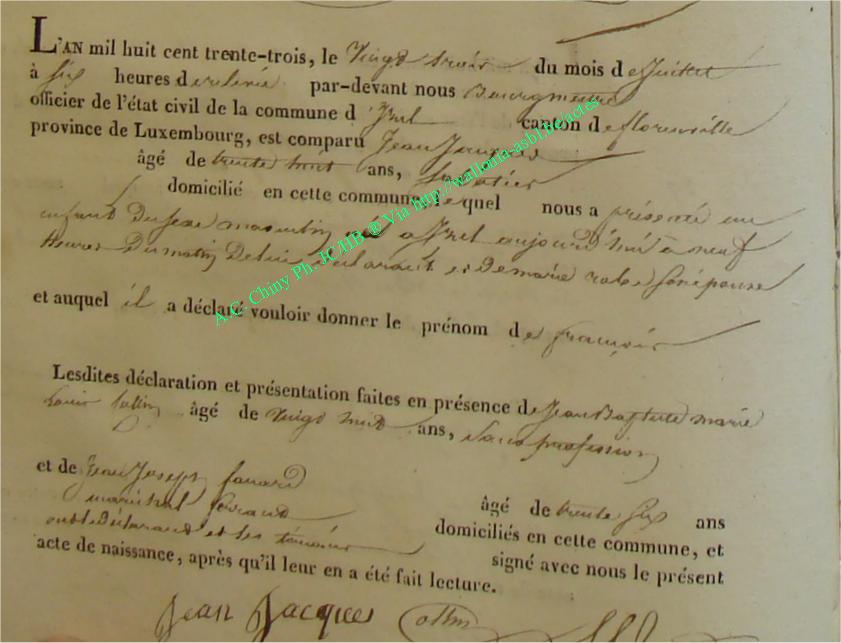 L'AN mil huit cent trente-trois, le vingt trois du mois de Juillet
à six heures de relevée par-devant nous Bourgmestre
officier de l'état civil de la commune d'Izel canton de florenville
province de Luxembourg, est comparu Jean Jacques
âgé de trente huit ans, sabotier
domicilié en cette commune lequel nous a présenté un
enfant du sexe masculin né a Izel aujourd'hui à neuf
heures du matin De lui déclarant et De marie son épouse
et auquel il a déclaré vouloir donner le prénom de françois
Lesdites déclaration et présentation faites en présence de Jean Baptiste marie
Louis âgé de vingt huit ans, sans profession
et de Jean Joseph
maréchal ferrant âgé de trente six ans
ont le Déclarant et les témoins domiciliés en cette commune, et
signé avec nous le présent
acte de naissance, après qu'il leur en a été fait lecture.
Jean Jacques
A.C. Chiny Ph. JC/HB @ Via http://wallonia-asbl.be/actes